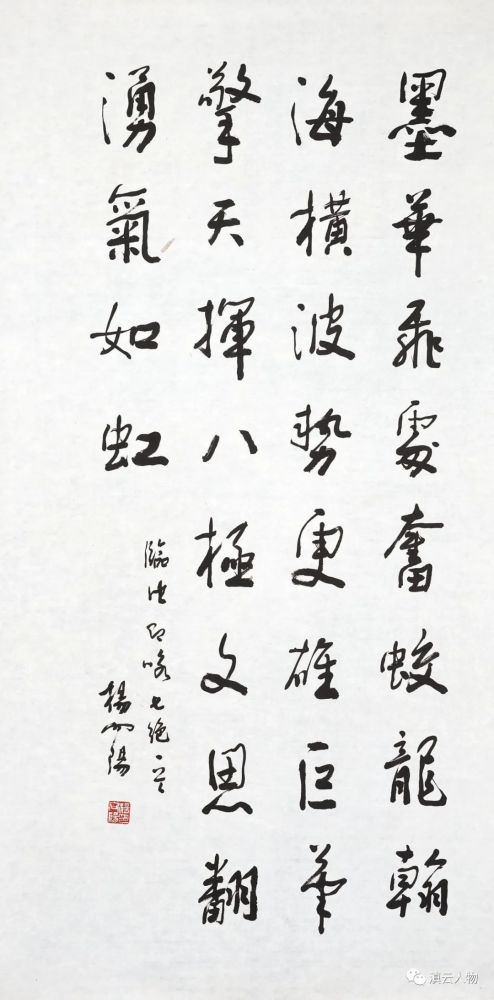 墨華飛處奮蛟龍翰
海橫波勢更雄巨筆
擎天揮八極文思翻
湧氣如虹
臨池即咏七絕一首
楊陽
滇云人物